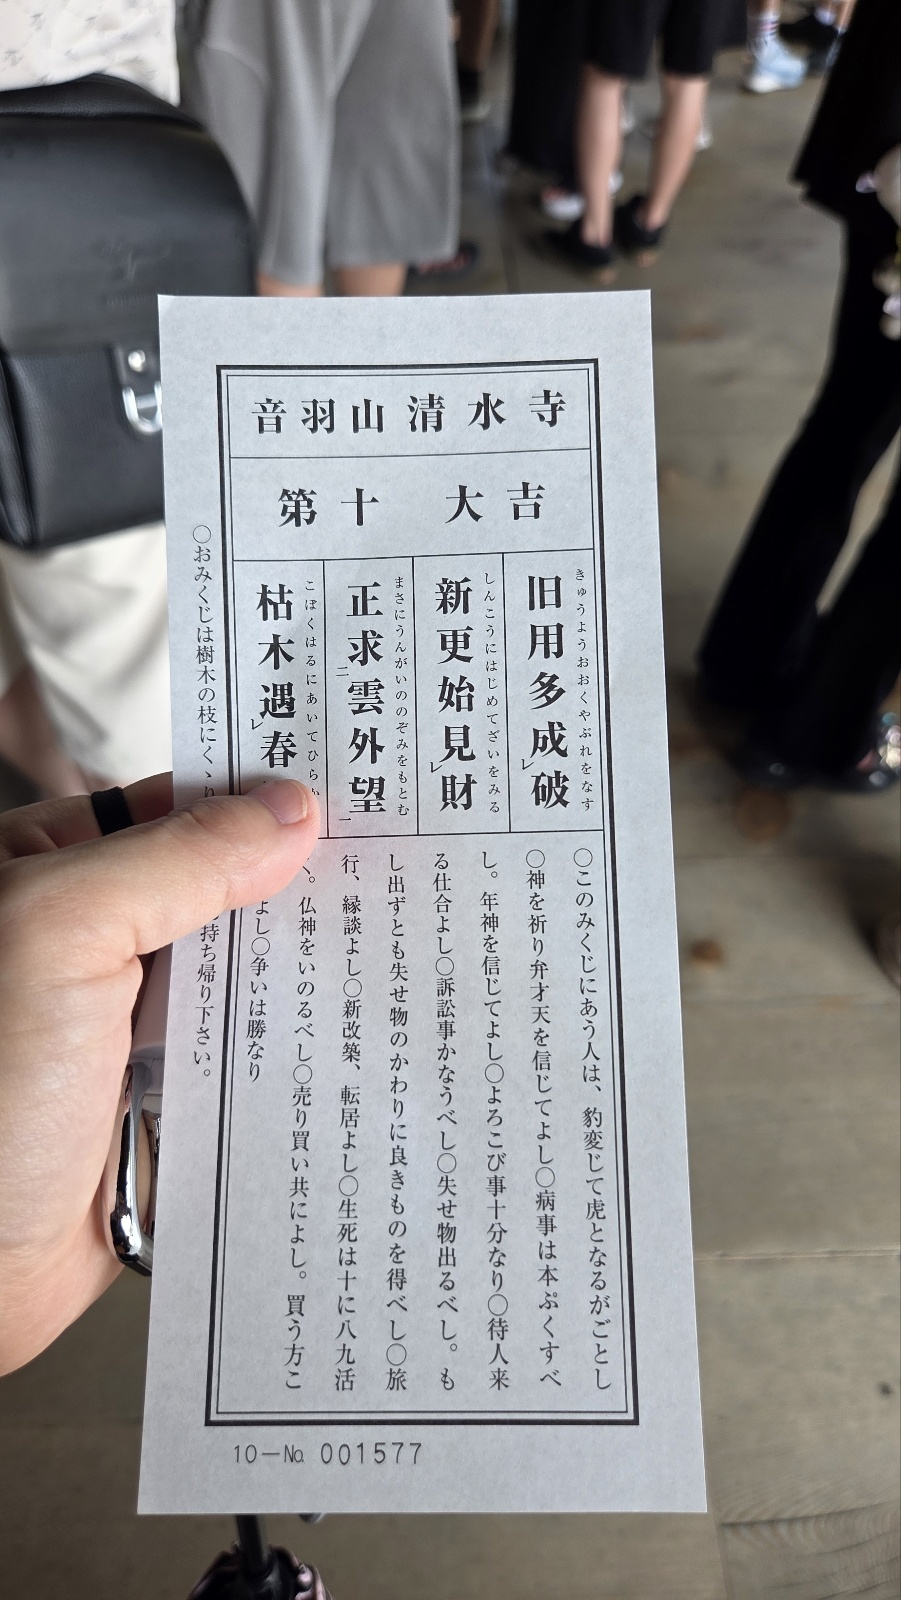 音羽山清水寺
第十 大吉
旧用多成レ破
きゅうようおおくやぶれをなす
新更始見レ財
しんこうにはじめてざいをみる
正求二雲外望一
まさにうんがいののぞみをもとむ
枯木遇レ春
こぼくはるにあいてひらか
〇このみくじにあう人は、豹変じて虎となるがごとし
〇神を祈り弁才天を信じてよし〇病事は本ぷくすべ
し。年神を信じてよし〇よろこび事十分なり〇待人来
る仕合よし〇訴訟事かなうべし〇失せ物出るべし。も
し出ずとも失せ物のかわりに良きものを得べし〇旅
行、縁談よし〇新改築、転居よし〇生死は十に八九活
く。仏神をいのるべし〇売り買い共によし。買う方こ
よし〇争いは勝なり
〇おみくじは樹木の枝にくゝり
持ち帰り下さい。
10－№ 001577